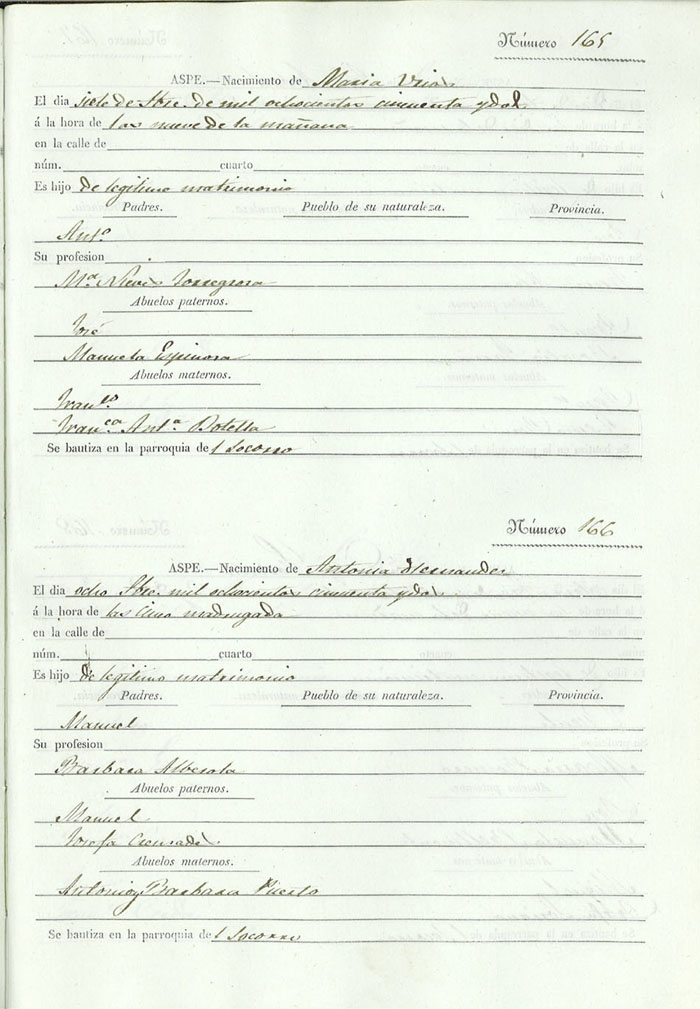 Número 165
ASPE.—Nacimiento de Maria Urios
El dia siete de Sbre. de mil ochocientos cincuenta y dos
á la hora de las nueve de la mañana
en la calle de
núm. cuarto
Es hijo de legitimo matrimonio
Padres. Pueblo de su naturaleza. Provincia.
Ant.o
Su profesion
M.a Nieves Torregrosa
Abuelos paternos.
José
Manuela Espinosa
Abuelos maternos.
Fran.co
Fran.ca Ant.a Botella
Se bautiza en la parroquia del Socorro
Número 166
ASPE.—Nacimiento de Antonia Hernandez
El dia ocho Sbre. mil ochocientos cincuenta y dos
á la hora de las cinco madrugada
en la calle de
núm. cuarto
Es hijo de legitimo matrimonio
Padres. Pueblo de su naturaleza. Provincia.
Manuel
Su profesion
Barbara Alberola
Abuelos paternos.
Manuel
Josefa
Abuelos maternos.
Antonio y Barbara Puerto
Se bautiza en la parroquia del Socorro